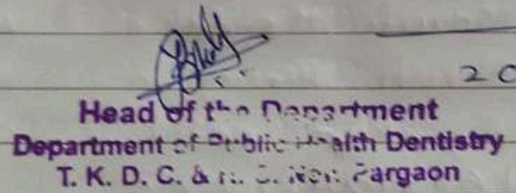 20
Head of the Department
Department of Public Health Dentistry
T. K. D. C. & R. C. New Pargaon